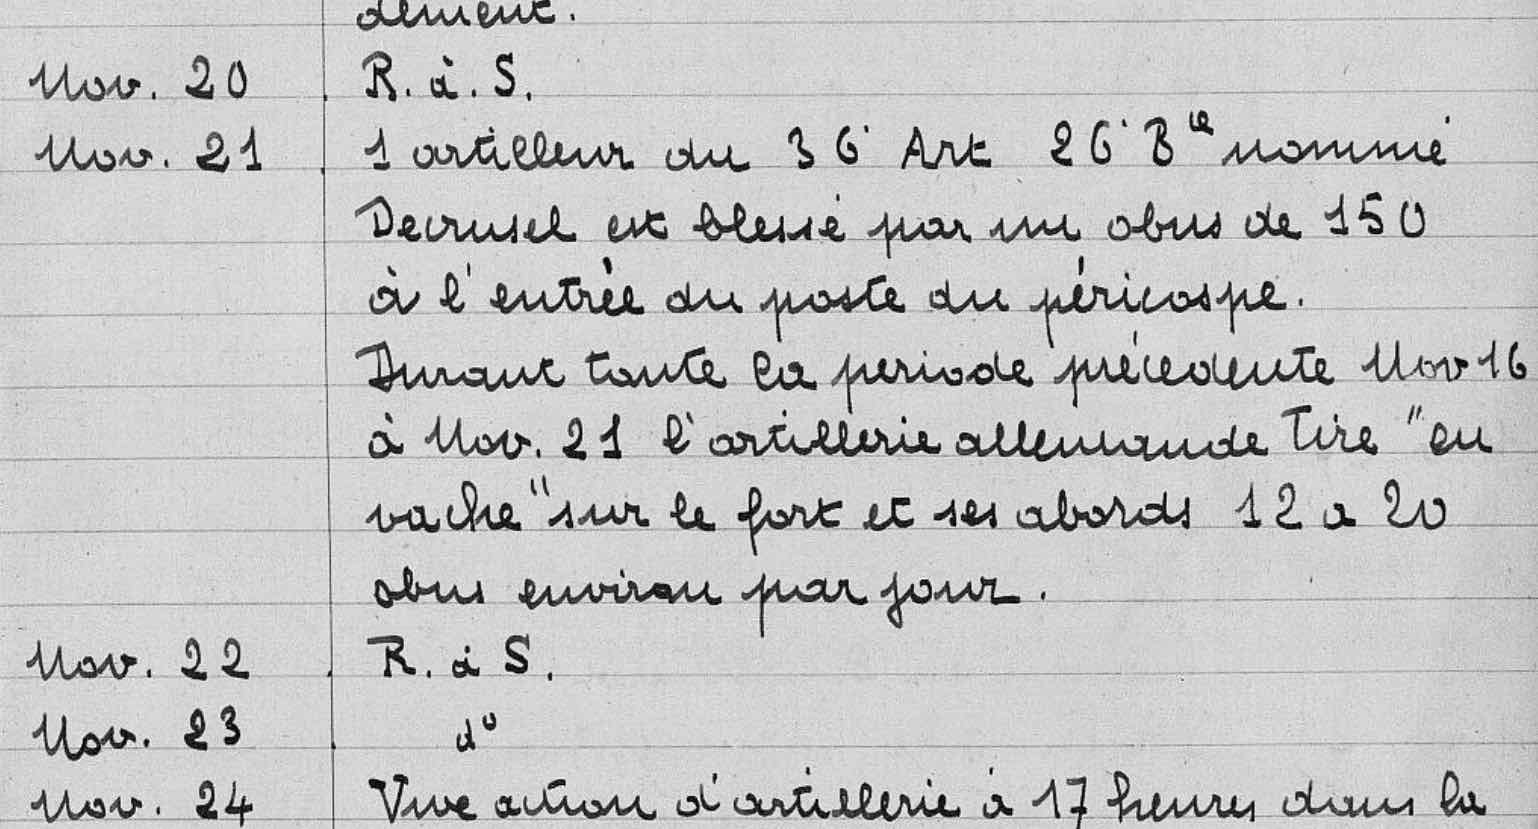 dement.
Nov. 20 . R. à. S.
Nov. 21 . 1 artilleur du 36' Art 26' Bie nommé
Decrusel est blessé par un obus de 150
à l'entrée du poste du péricospe.
Durant toute la periode précedente Nov 16
à Nov. 21 l'artillerie allemande Tire "en
vache" sur le fort et ses abords 12 a 20
obus environ par jour.
Nov. 22 . R. à S.
Nov. 23 . do
Nov. 24 Vive action d'artillerie à 17 heures dans la